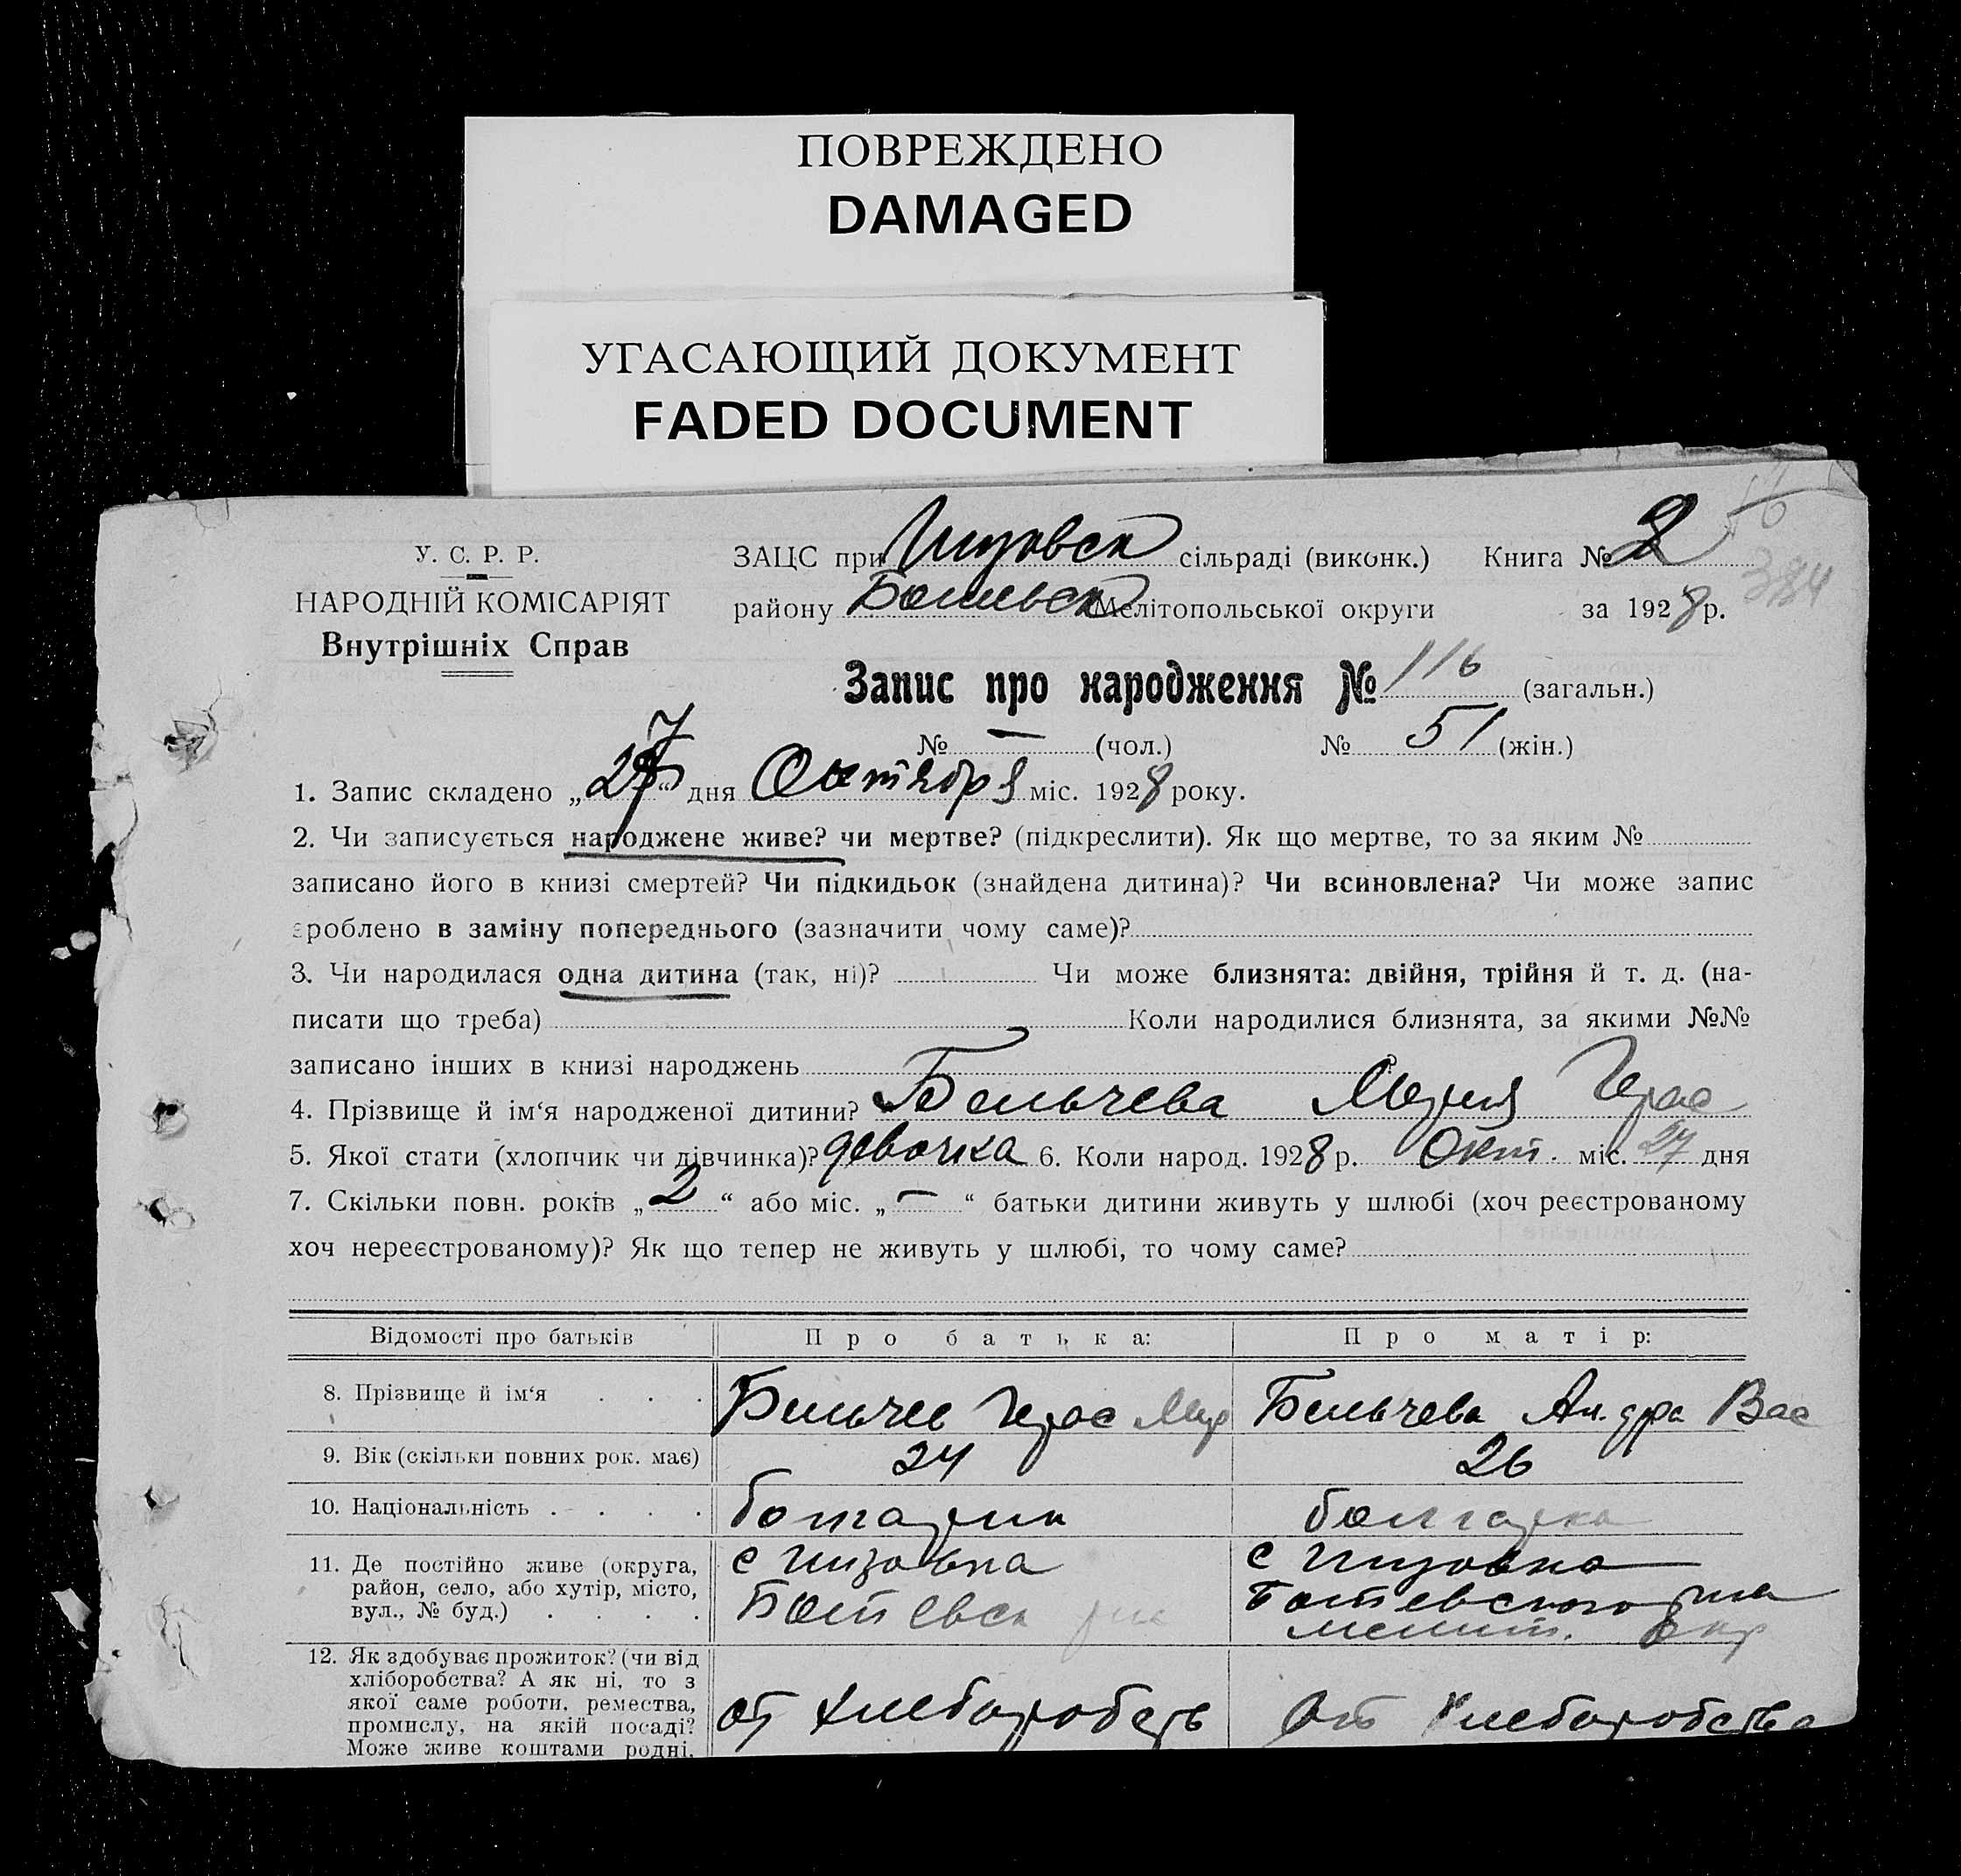 ПОВРЕЖДЕНО
DAMAGED
УГАСАЮЩИЙ ДОКУМЕНТ
FADED DOCUMENT
384
У. С. Р. Р.
НАРОДНІЙ КОМІСАРІЯТ
Внутрішніх Справ
ЗАЦС при Гизовск сільраді (виконк.) Книга № 2
району Мелітопольської округи за 1928 р.
Запис про народження № 116 (загальн.)
№ — (чол.) № 51 (жін.)
1. Запис складено „27“ дня Октября міс. 1928 року.
2. Чи записується народжене живе? чи мертве? (підкреслити). Як що мертве, то за яким №
записано його в книзі смертей? Чи підкидьок (знайдена дитина)? Чи всиновлена? Чи може запис
зроблено в заміну попереднього (зазначити чому саме)?
3. Чи народилася одна дитина (так, ні)? Чи може близнята: двійня, трійня й т. д. (на-
писати що треба) Коли народилися близнята, за якими №№
записано інших в книзі народжень
4. Прізвище й ім‘я народженої дитини? Бельчева Мария Герас
5. Якої стати (хлопчик чи дівчинка)? девочка 6. Коли народ. 1928 р. Окт. міс. 27 дня
7. Скільки повн. років „2“ або міс. „—“ батьки дитини живуть у шлюбі (хоч реєстрованому
хоч нереєстрованому)? Як що тепер не живуть у шлюбі, то чому саме?
Відомості про батьків Про батька: Про матір:
8. Прізвище й ім‘я . . . Бельчев Герас Бельчева Ал-дра Вас
9. Вік (скільки повних рок. має) 24 26
10. Національність . . . . болгарин болгарка
11. Де постійно живе (округа, с Гизовка с Гизовка
район, село, або хутір, місто, Ботевск Ботевского
вул., № буд.) . . . . мелит. окр
12. Як здобуває прожиток? (чи від
хліборобства? А як ні, то з
якої саме роботи, ремества, от хлеборобств От хлеборобства
промислу, на якій посаді?
Може живе коштами родні,